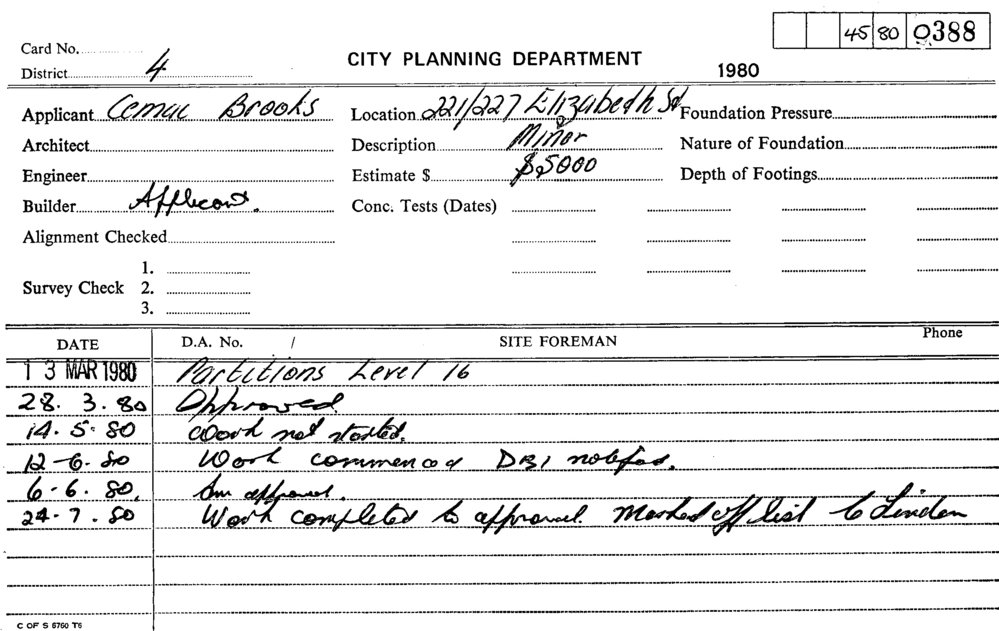 45 80 0388
Card No.
CITY PLANNING DEPARTMENT
District 4
1980
Applicant Cemac Brooks Location 221/227 Elizabeth St Foundation Pressure
Architect Description Minor Nature of Foundation
Engineer Estimate $ $5000 Depth of Footings
Builder Applicant. Conc. Tests (Dates)
Alignment Checked
1.
Survey Check 2.
3.
DATE D.A. No. / SITE FOREMAN Phone
13 MAR 1980 Partitions Level 16
28. 3. 80 Approved
14. 5. 80 Work not started.
12-6. 80 Work commenced DBI
6-6. 80. Am approval.
24-7. 80 Work completed to approval. Marked off list
C OF S 6760 T6